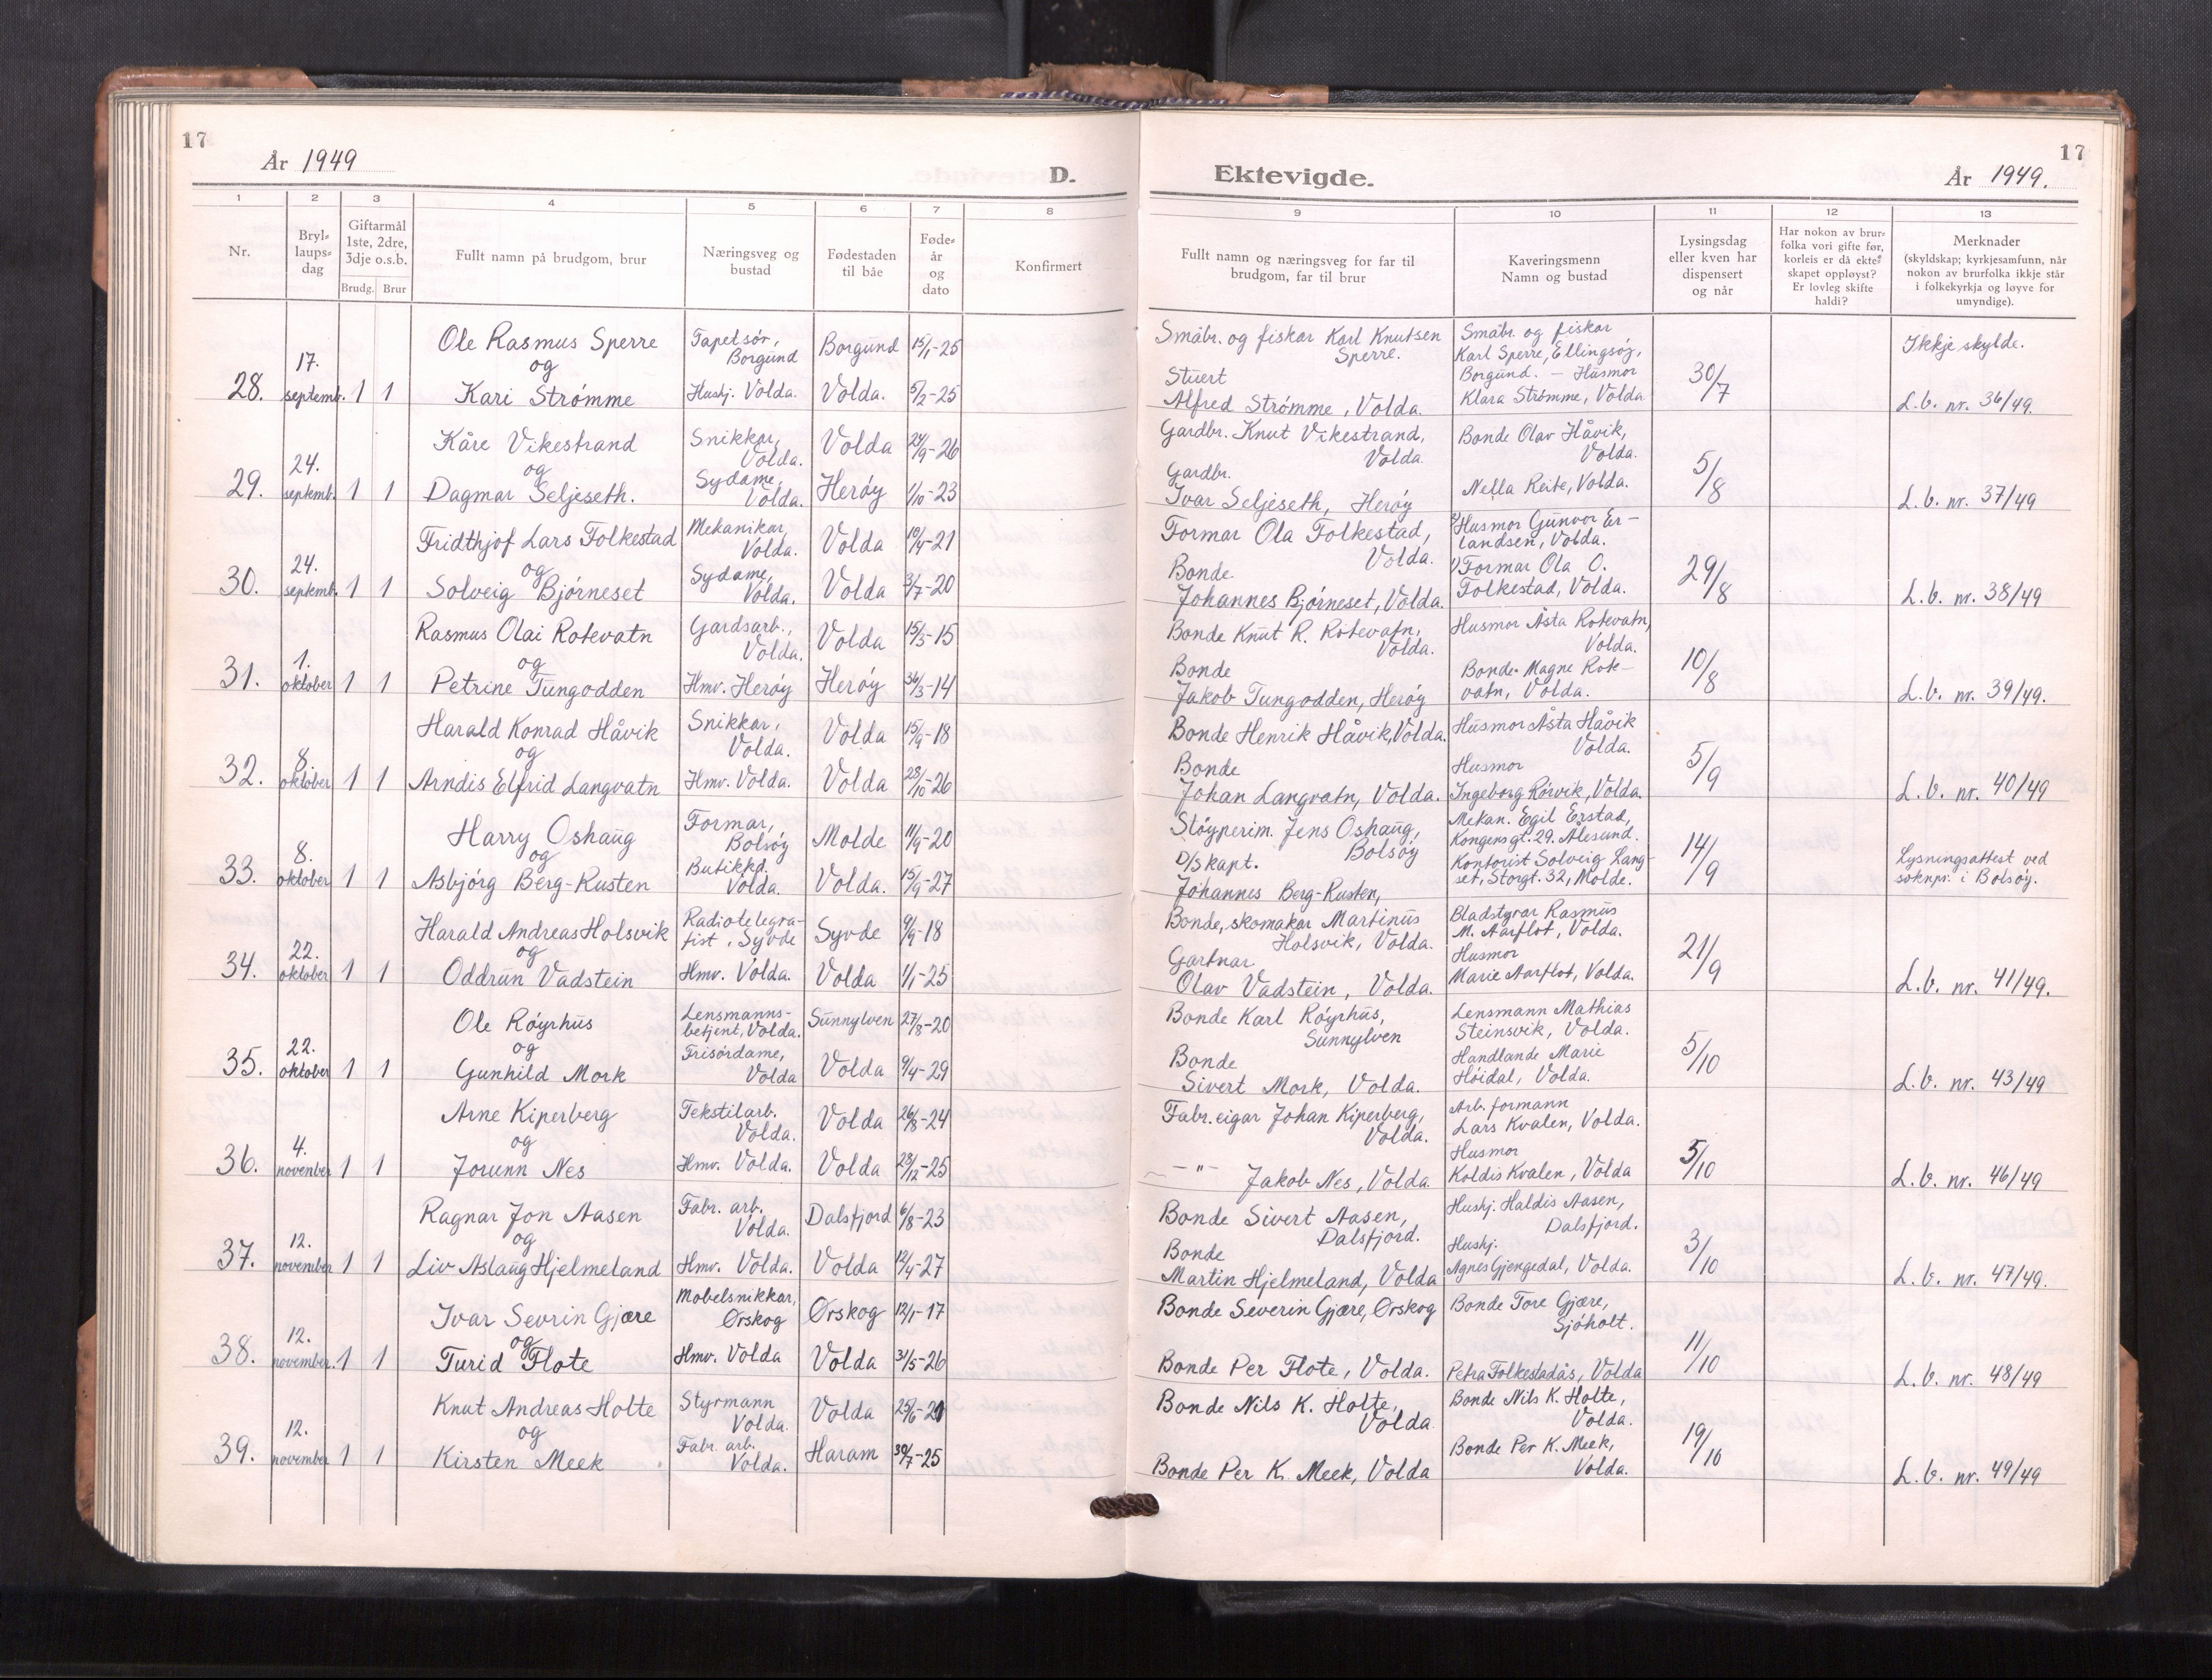 17
År 1949
D.
Ektevigde.
17
År 1949.
1
2
3
4
5
6
7
8
9
10
11
12
13
Nr.
Bryl-
laups-
dag
Giftarmål
1ste, 2dre,
3dje o.s.b.
Brudg. Brur
Fullt namn på brudgom, brur
Næringsveg og
bustad
Fødestaden
til båe
Føde-
år
og
dato
Konfirmert
Fullt namn og næringsveg for far til
brudgom, far til brur
Kaveringsmenn
Namn og bustad
Lysingsdag
eller kven har
dispensert
og når
Har nokon av brur-
folka vori gifte før,
korleis er då ekte-
skapet oppløyst?
Er lovleg skifte
haldi?
Merknader
(skyldskap; kyrkjesamfunn, når
nokon av brurfolka ikkje står
i folkekyrkja og løyve for
umyndige).
28.
17.
septemb.
1 1
Ole Rasmus Sperre
og
Kari Strømme
Tapetsør,
Borgund
Hushj. Volda.
Borgund
Volda.
15/1-25
5/2-25
Småbr. og fiskar Karl Knutsen
Sperre.
Stuert
Alfred Strømme, Volda.
Småbr. og fiskar
Karl Sperre, Ellingsøy,
Borgund. - Husmor
Klara Strømme, Volda
30/7
Ikkje skylde.
L.b. nr. 36/49.
29.
24.
septemb.
1 1
Kåre Vikestrand
og
Dagmar Seljeseth.
Snikkar,
Volda.
Sydame,
Volda.
Volda
Herøy
24/9-26
1/10-23
Gardbr. Knut Vikestrand,
Volda.
Gardbr.
Ivar Seljeseth, Herøy
Bonde Olav Håvik,
Volda.
Nella Reite, Volda.
5/8
L.b. nr. 37/49
30.
24.
septemb.
1 1
Fridthjof Lars Folkestad
og
Solveig Bjørneset
Mekanikar,
Volda.
Sydame,
Volda.
Volda
Volda
19/4-21
3/7-20
Formar Ola Folkestad,
Volda.
Bonde
Johannes Bjørneset, Volda.
2) Husmor Gunvor Er-
landsen, Volda.
1) Formar Ola O.
Folkestad, Volda.
29/8
L.b. nr. 38/49
31.
1.
oktober
1 1
Rasmus Olai Rotevatn
og
Petrine Tungodden
Gardsarb.,
Volda.
Hmv. Herøy
Volda
Herøy
15/5-15
/3-14
Bonde Knut R. Rotevatn,
Volda.
Bonde
Jakob Tungodden, Herøy
Husmor Åsta Rotevatn,
Volda.
Bonde Magne Rote-
vatn, Volda.
10/8
L.b. nr. 39/49.
32.
8.
oktober
1 1
Harald Konrad Håvik
og
Arndis Elfrid Langvatn
Snikkar,
Volda.
Hmv. Volda.
Volda
Volda
15/9-18
28/10-26
Bonde Henrik Håvik, Volda.
Bonde
Johan Langvatn, Volda.
Husmor Åsta Håvik
Volda.
Husmor
Ingeborg Rørvik, Volda.
5/9
L.b. nr. 40/49
33.
8.
oktober
1 1
Harry Oshaug
og
Asbjørg Berg-Rusten
Formar,
Bolsøy
Butikkd.
Volda.
Molde
Volda.
11/9-20
15/9-27
Støyperim. Jens Oshaug,
Bolsøy
D/S kapt.
Johannes Berg-Rusten,
Mekan. Egil Erstad,
Kongensgt. 29. Ålesund.
Kontorist Solveig Lang-
set, Storgt. 32, Molde.
14/9
Lysningsattest ved
soknpr. i Bolsøy.
34.
22.
oktober
1 1
Harald Andreas Holsvik
og
Oddrun Vadstein
Radiotelegra-
fist, Syvde
Hmv. Volda.
Syvde
Volda
9/9-18
1/1-25
Bonde, skomakar Martinus
Holsvik, Volda.
Gartnar
Olav Vadstein, Volda.
Bladstyrar Rasmus
M. Aarflot, Volda.
Husmor
Marie Aarflot, Volda.
21/9
L.b. nr. 41/49.
35.
22.
oktober
1 1
Ole Røyrhus
og
Gunhild Mork
Lensmanns-
betjent, Volda.
Frisørdame,
Volda
Sunnylven
Volda
27/8-20
9/4-29
Bonde Karl Røyrhus,
Sunnylven
Bonde
Sivert Mork, Volda.
Lensmann Mathias
Steinsvik, Volda.
Handlande Marie
Høidal, Volda.
5/10
L.b. nr. 43/49
36.
4.
november
1 1
Arne Kiperberg
og
Jorunn Nes
Tekstilarb.
Volda.
Hmv. Volda.
Volda
Volda
26/8-24
28/12-25
Fabr. eigar Johan Kiperberg,
Volda.
-"- Jakob Nes, Volda.
Arb. formann
Lars Kvalen, Volda.
Husmor
Koldis Kvalen, Volda
5/10
L.b. nr. 46/49
37.
12.
november
1 1
Ragnar Jon Aasen
og
Liv Aslaug Hjelmeland
Fabr. arb.
Volda.
Hmv. Volda.
Dalsfjord
Volda
6/8-23
12/4-27
Bonde Sivert Aasen,
Dalsfjord.
Bonde
Martin Hjelmeland, Volda
Hushj. Haldis Aasen,
Dalsfjord.
Hushj.
Agnes Gjengedal, Volda.
3/10
L.b. nr. 47/49.
38.
12.
november.
1 1
Ivar Sevrin Gjære
og
Turid Flote
Møbelsnikkar,
Ørskog
Hmv. Volda
Ørskog
Volda
12/1-17
31/5-26
Bonde Severin Gjære, Ørskog
Bonde Per Flote, Volda.
Bonde Tore Gjære,
Sjøholt.
Petra Folkestadås, Volda
11/10
L.b. nr. 48/49
39.
12.
november
1 1
Knut Andreas Holte
og
Kirsten Meek
Styrmann
Volda.
Fabr. arb.
Volda.
Volda
Haram
25/6-
30/7-25
Bonde Nils K. Holte,
Volda
Bonde Per K. Meek, Volda
Bonde Nils K. Holte,
Volda.
Bonde Per K. Meek,
Volda.
19/10
L.b. nr. 49/49